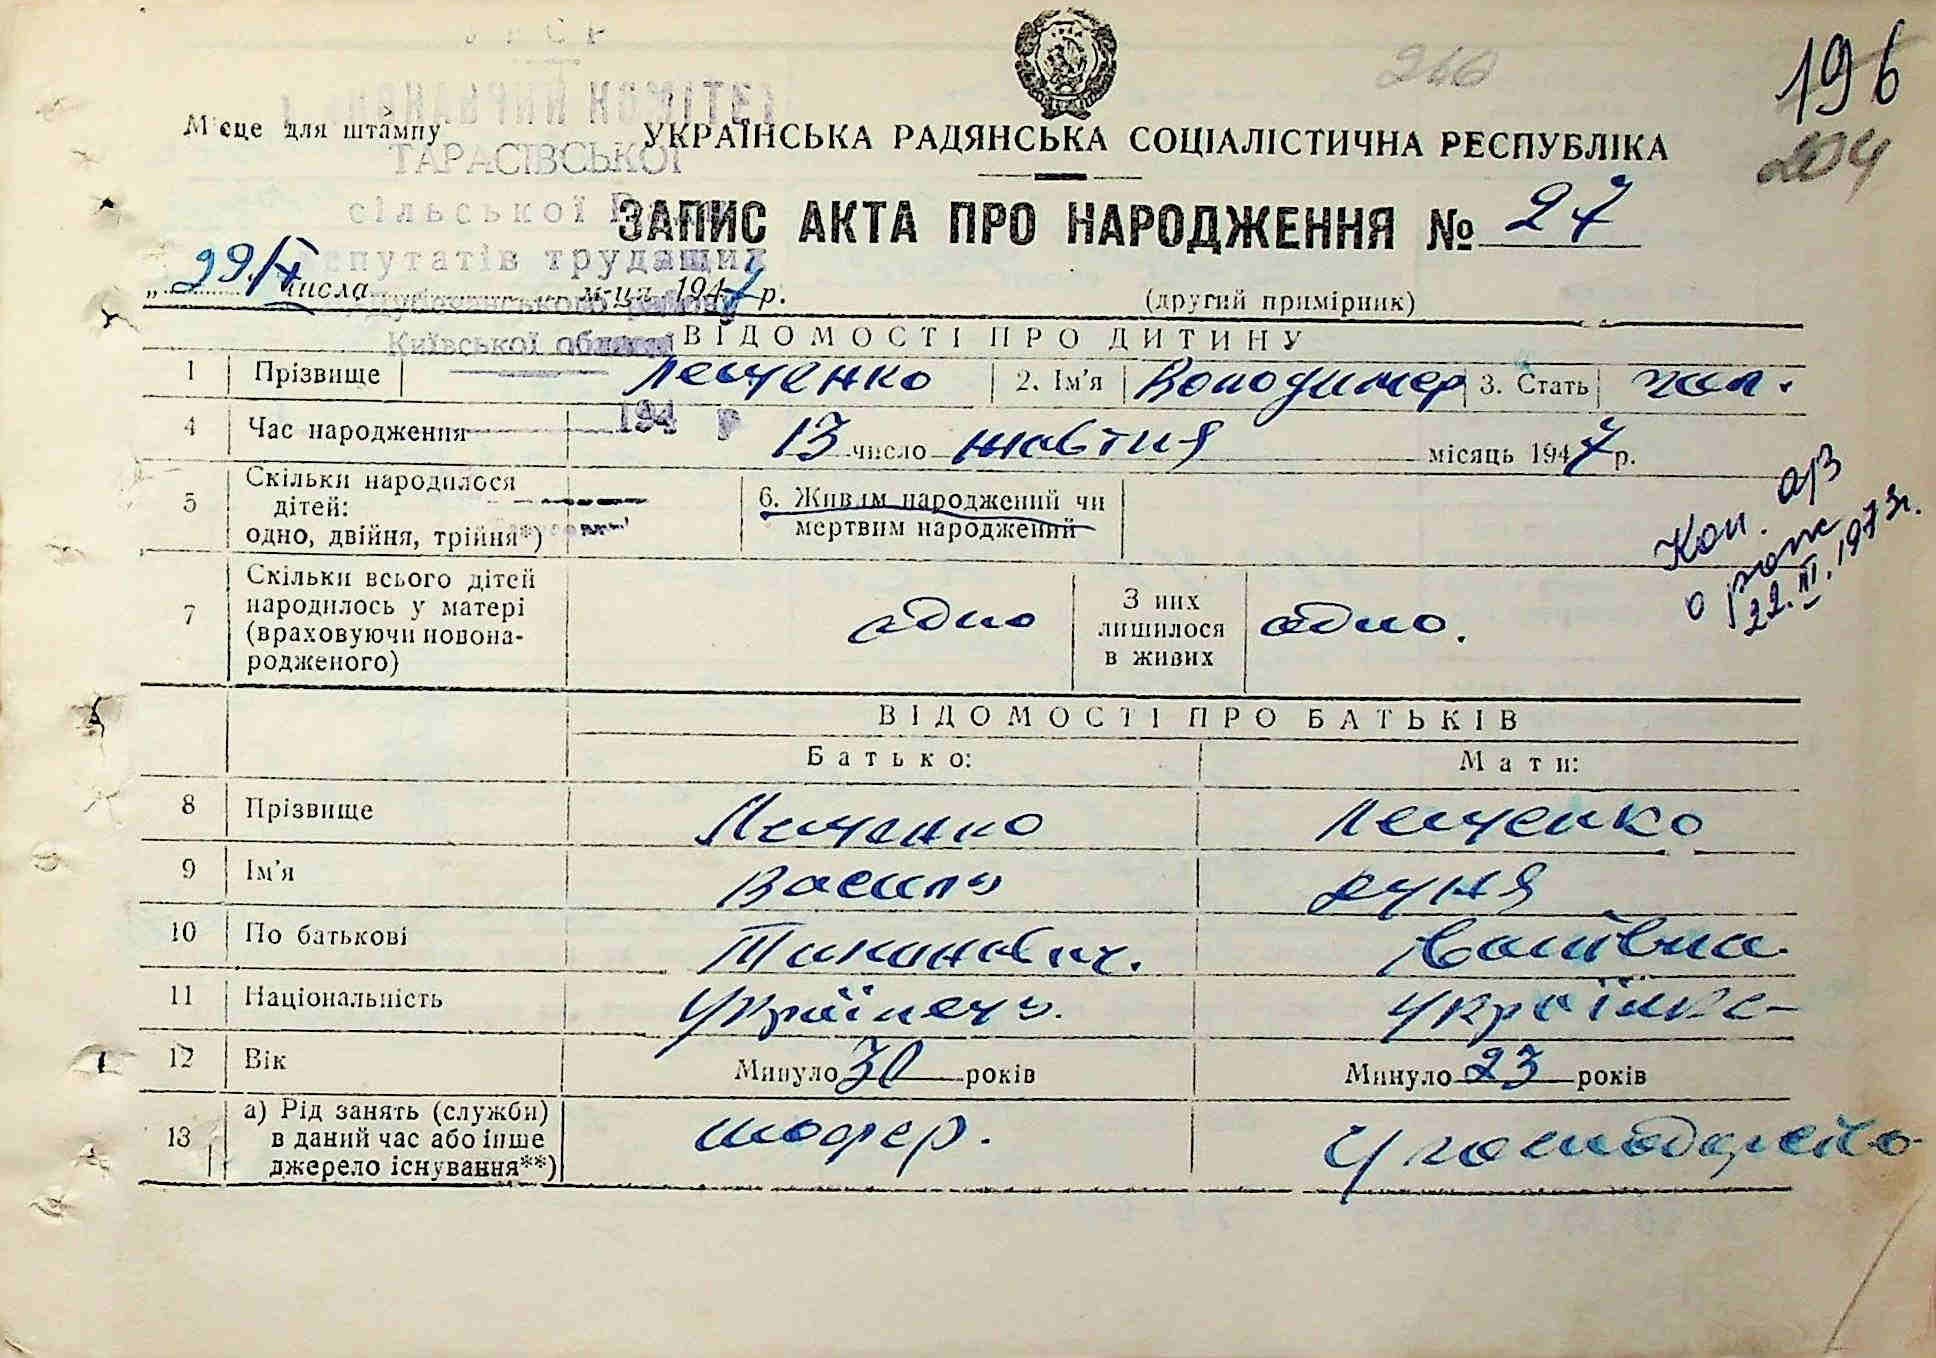 УРСР
196
240
204
Місце для штампу
УКРАЇНСЬКА РАДЯНСЬКА СОЦІАЛІСТИЧНА РЕСПУБЛІКА
ТАРАСІВСЬКОЇ
сільської Ради
депутатів трудящих
Київської області
194 р
ЗАПИС АКТА ПРО НАРОДЖЕННЯ № 27
„ 29/X числа м-ця 1947 р.
(другий примірник)
ВІДОМОСТІ ПРО ДИТИНУ
1 Прізвище Лещенко 2. Ім'я Володимер 3. Стать чол.
4 Час народження 13 число жовтня місяць 1947 р.
5 Скільки народилося дітей: одно, двійня, трійня*) 6. Живим народжений чи мертвим народжений
7 Скільки всього дітей народилось у матері (враховуючи новонародженого) одно З них лишилося в живих одно.
Коп. 22.III.1973г.
ВІДОМОСТІ ПРО БАТЬКІВ
Батько: Мати:
8 Прізвище Лещенко Лещенко
9 Ім'я Василь
10 По батькові
11 Національність Українець. Українка
12 Вік Минуло 30 років Минуло 23 років
13 а) Рід занять (служби) в даний час або інше джерело існування**) шофер.